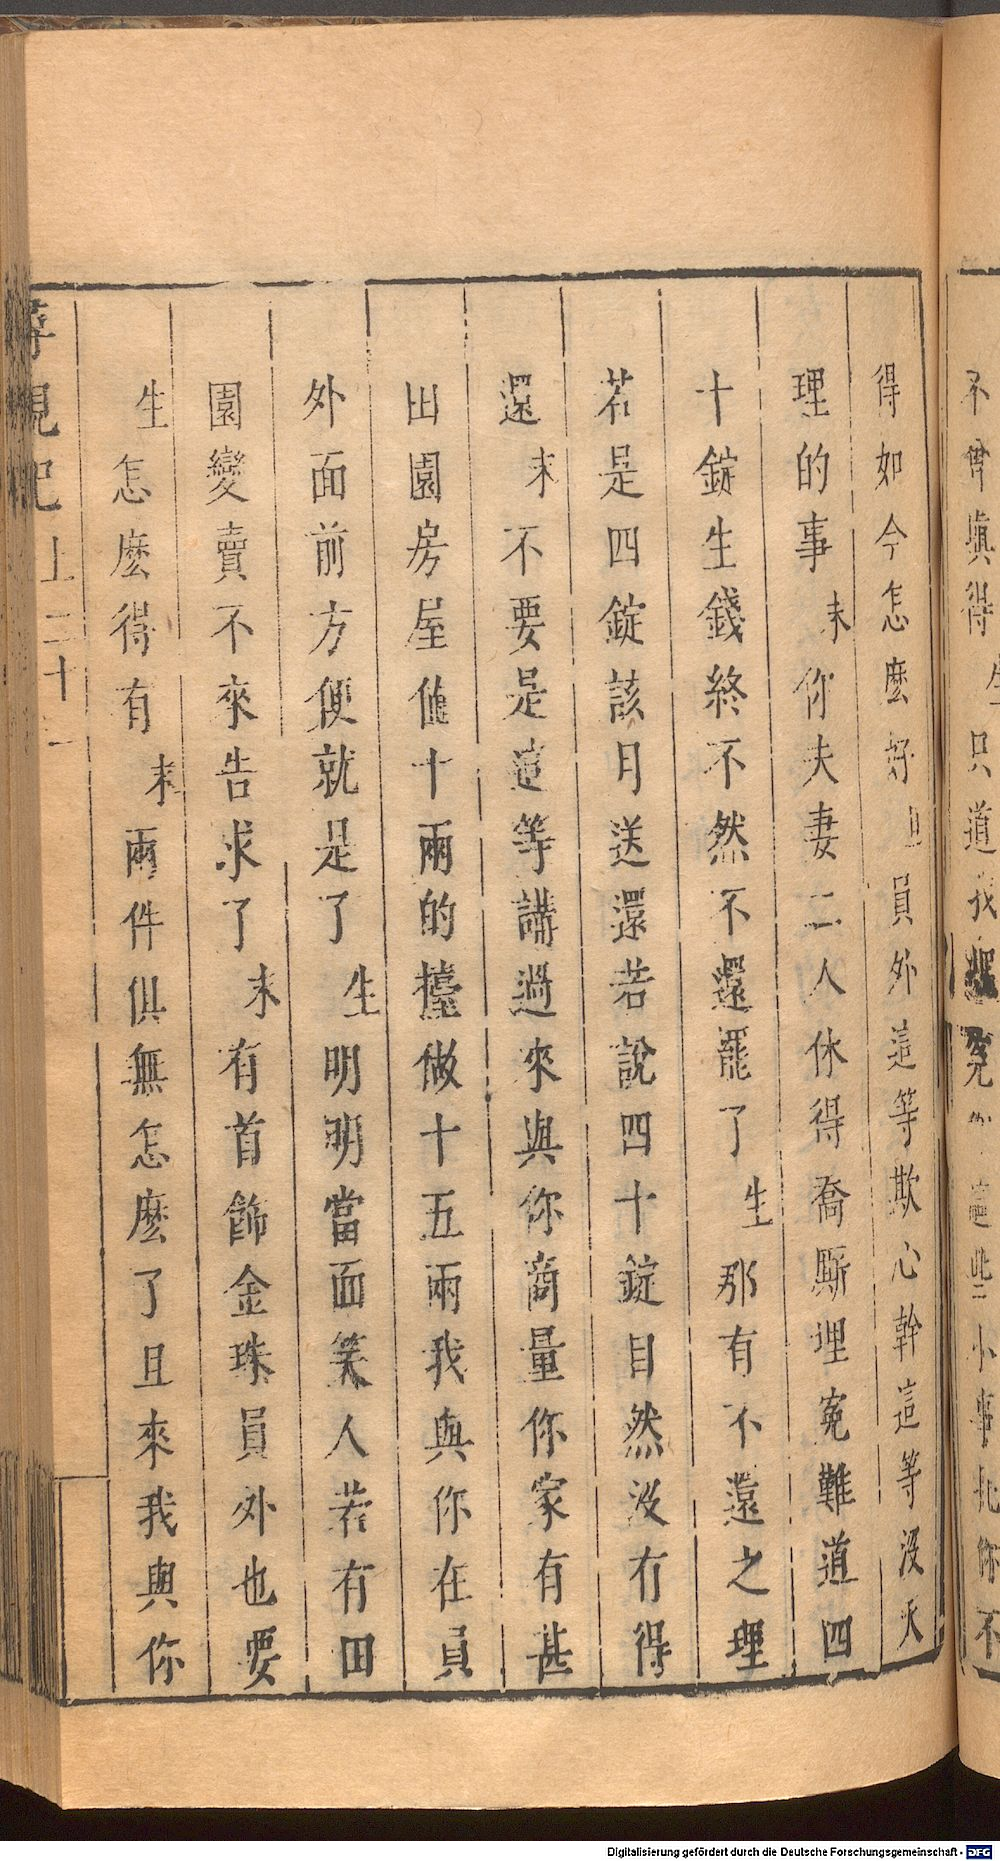 不曾填得生只道我
寃
這些小事托你不
得如今怎麽好旦員外這等欺心幹這等沒天
理的事末你夫妻二人休得喬厮埋寃難道四
十錠生錢終不然不還罷了生那有不還之理
若是四錠該月送還若說四十錠目然沒有得
還末不要是這等講過來與你商量你家有甚
田園房屋值十兩的擡做十五兩我與你在員
外面前方便就是了生明明當面笑人若有田
園變賣不來告求了末有首飾金珠員外也要
生怎麽得有末兩件俱無怎麽了且來我與你
尋親記 上 二十一
Digitalisierung gefördert durch die Deutsche Forschungsgemeinschaft - DFG